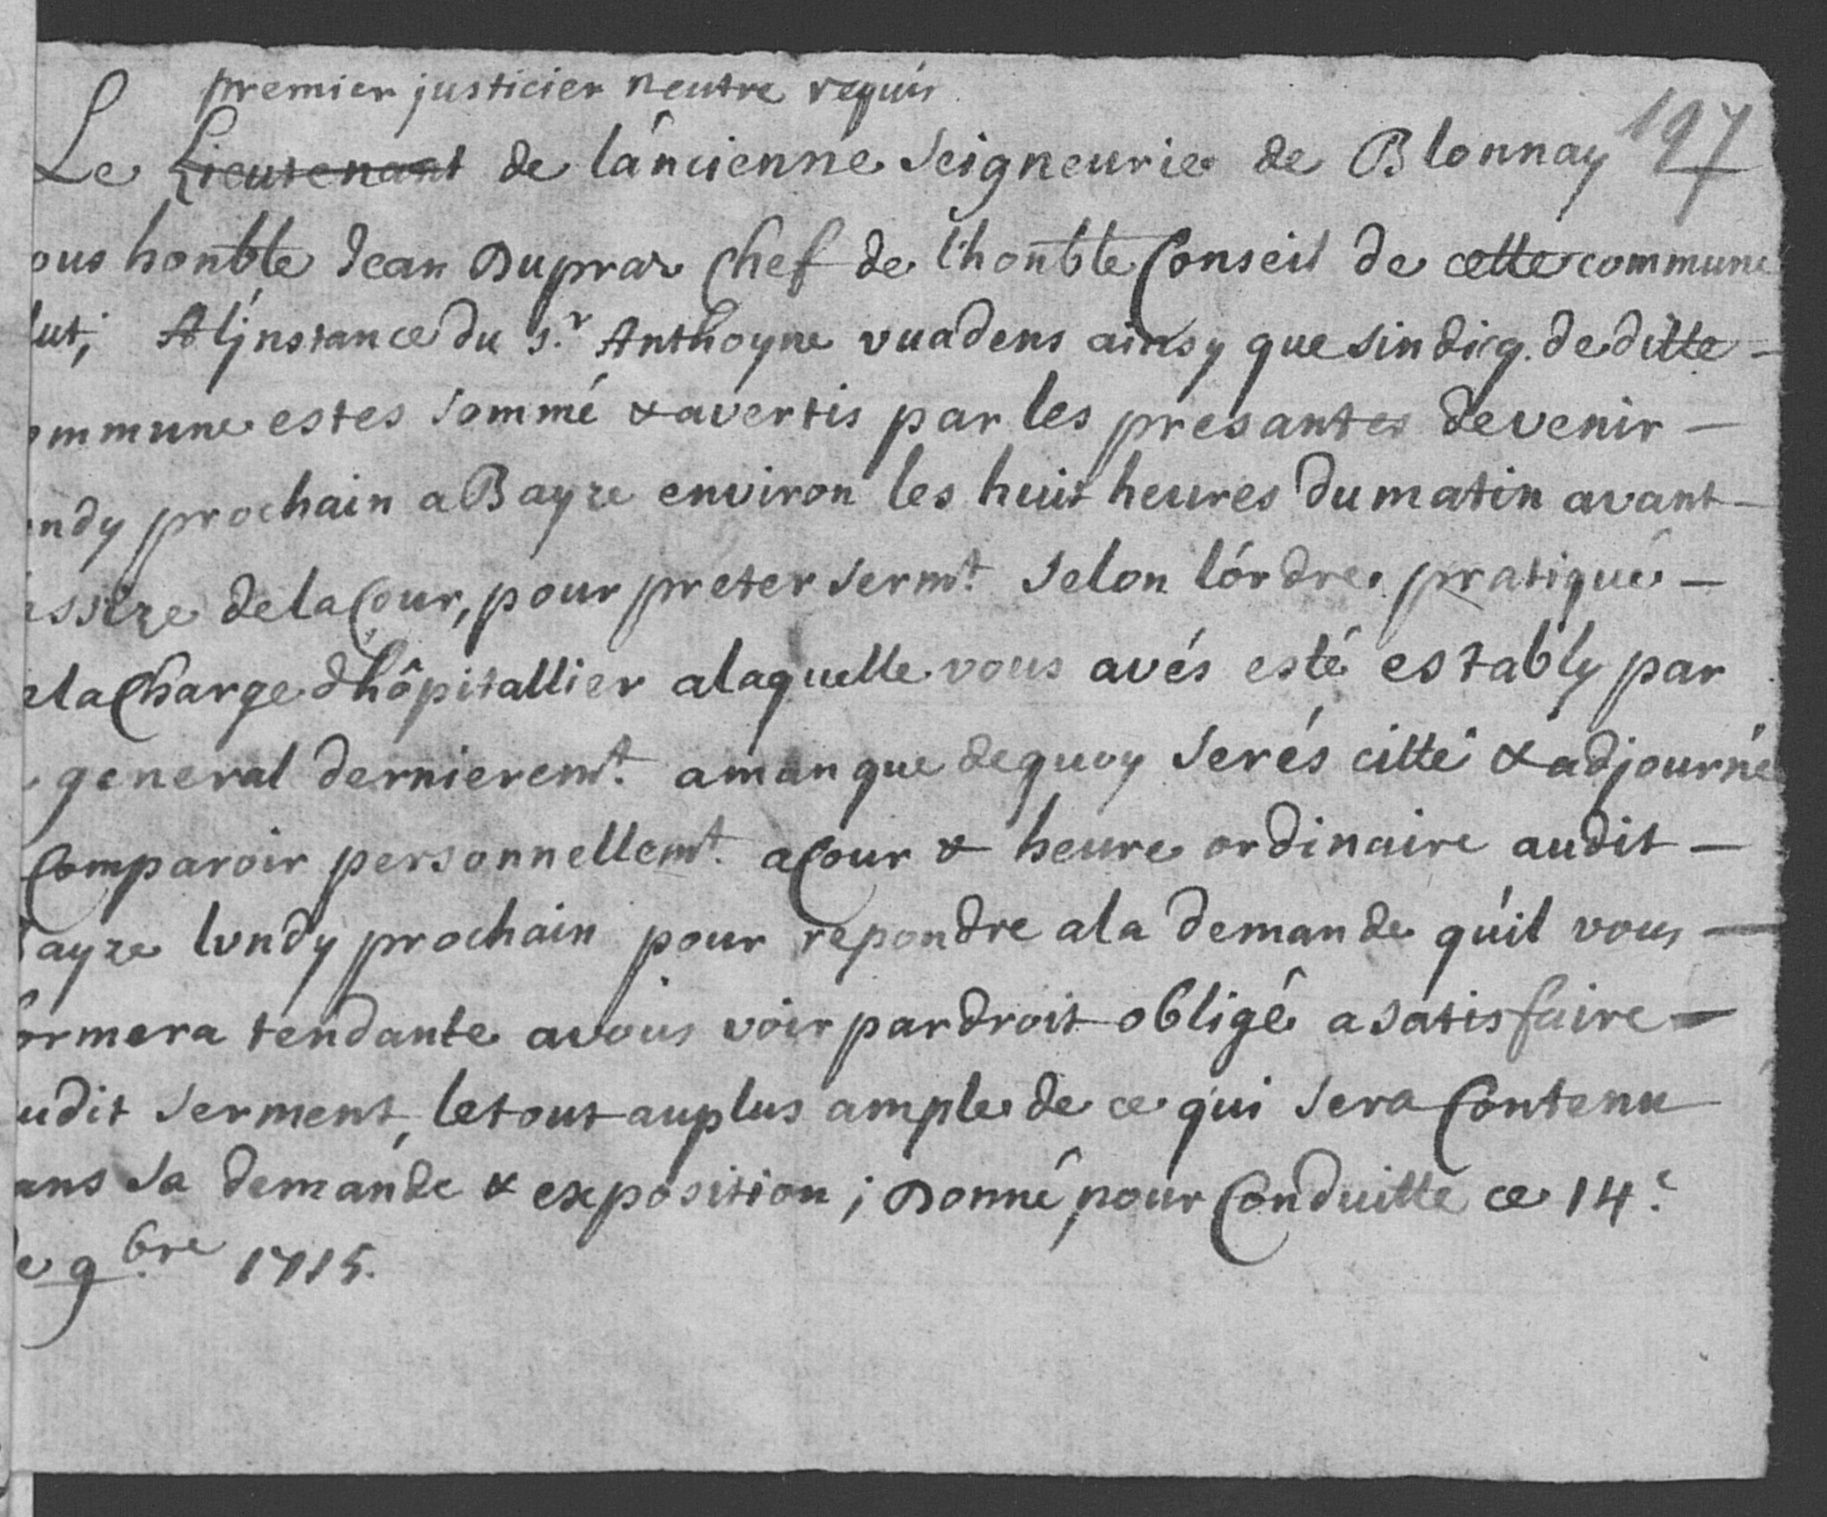 premier justicier neutre requis
Le Lieutenant de láncienne Seigneurie de Blonnay 197
ous honble Jean Dupraz Chef de lhonble Conseil de cette commune
lut; A ljnstance du Sr. Anthoyne vuadens ainsy que sindicq. de ditte
ommune estes sommé & avertis par les presantes de venir
ndy prochain a Bayze environ les huit heures du matin avant
ssize de la Cour, pour preter sermt. selon lórdre pratiqué
la Charge dhôpitallier a laquelle vous avés esté estably par
general dernieremt. a manque dequoy serés citté & adjourné
Comparoir personnellemt. a Cour & heure ordinaire audit
ayze lundy prochain pour repondre a la demande qúil vous
ormera tendante a vous voir par droit obligé a satisfaire
udit serment, le tout au plus ample de ce qui sera Contenu
ans sa demande & exposition; Donné pour Conduitte ce 14e.
e 9bre 1715.